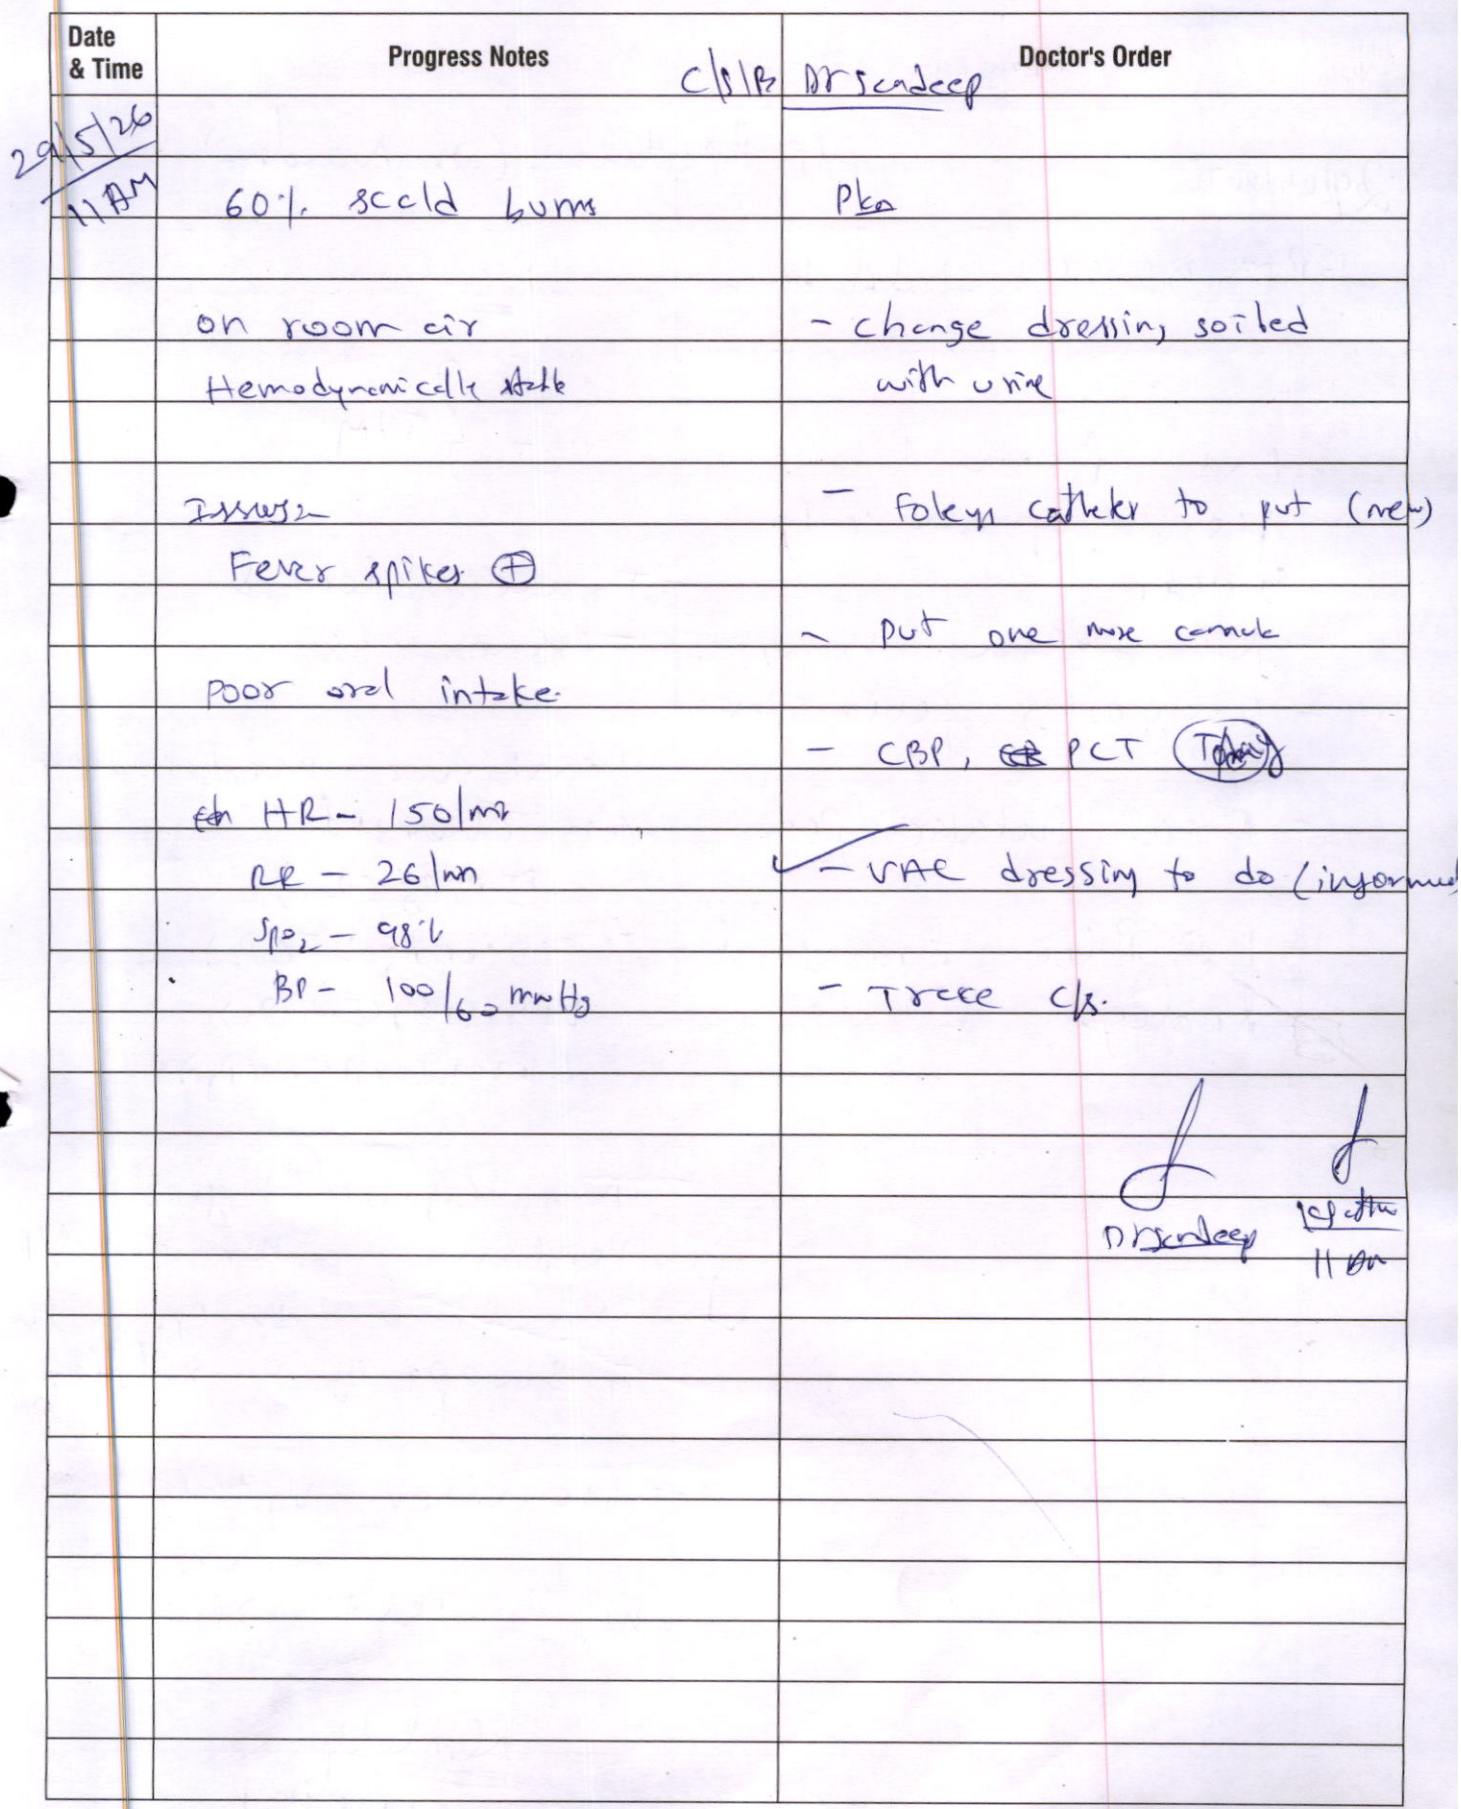 Date & Time
Progress Notes
Doctor's Order
C/S/B Dr Sandeep
29/5/26
11 AM
60% scald burns
Plan
on room air
- change dressing soiled
Hemodynamically stable
with urine
Issues
- Foleys catheter to put (new)
Fever spikes ⊕
- put one more cannula
poor oral intake.
- CBP, PCT Today
HR - 150/min
RR - 26/min
- VAC dressing to do (informed)
SpO2 - 98%
BP - 100/60 mmHg
- Trace c/s.
Dr Sandeep
11 am